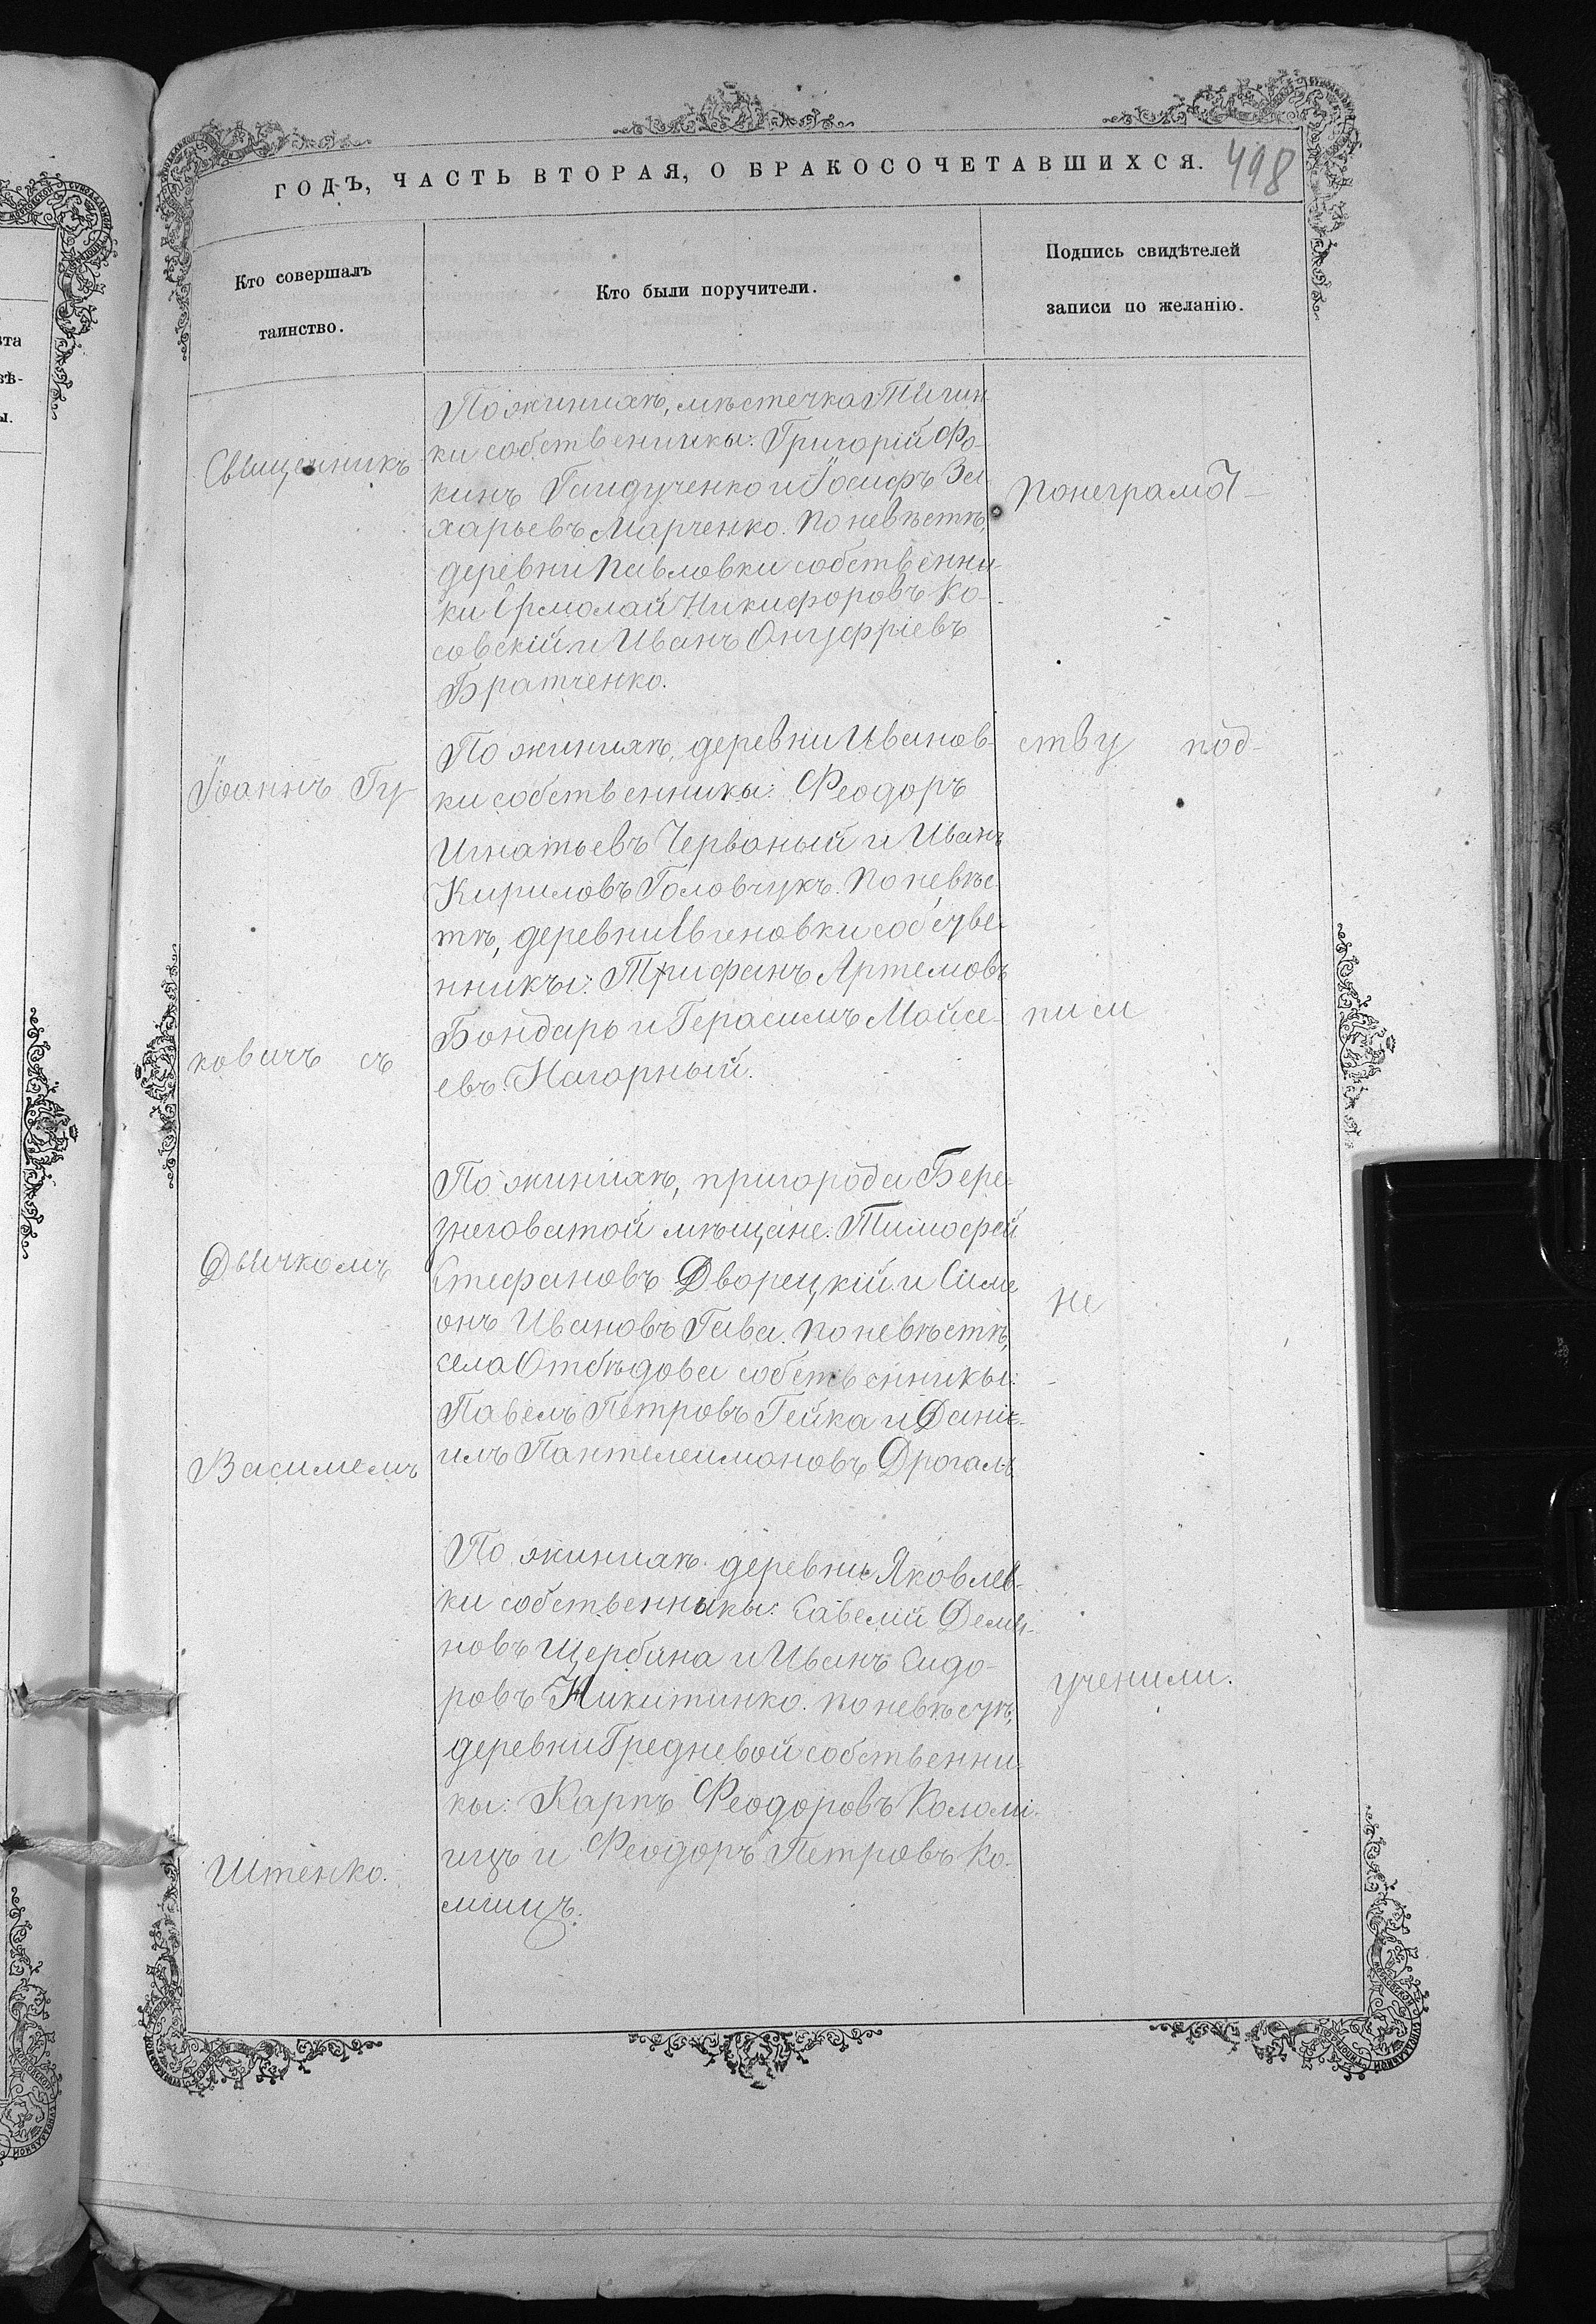 ГОДЪ, ЧАСТЬ ВТОРАЯ, О БРАКОСОЧЕТАВШИХСЯ.
498
Кто совершалъ
таинство.
Кто были поручители.
Подпись свидѣтелей
записи по желанію.
Священникъ
Іоаннъ Гу
ковичъ съ
Дьячкомъ
Василіемъ
Штенко.
По женихѣ, мѣстечка Тягин
ки собственники: Григорій Фо-
кинъ Гайдученко и Іосифъ За
харьевъ Марченко. По невѣстѣ,
деревни Павловки собственни-
ки Ермолай Никифоровъ Ко-
совскій и Иванъ Онуфріевъ
Братченко.
По женихѣ, деревни Иванов-
ки собственники: Феодоръ
Игнатьевъ Червоный и Иванъ
Кириловъ Головчукъ. По невѣс
тѣ, деревни Евгеновки собстве-
нникы: Трифанъ Артемовъ
Бондарь и Герасимъ Мойсе-
евъ Нагорный.
По женихѣ, пригорода Бере-
знеговатой мѣщане: Тимофей
Стефановъ Дворецкій и Симе
онъ Ивановъ Гава. По невѣстѣ,
села Отбѣдова собственникы:
Павелъ Петровъ Гейка и Дані-
илъ Пантелеимоновъ Дрогаль
По женихѣ деревни Яковлев-
ки собственникы: Савелій Демя-
новъ Щербина и Иванъ Сидо-
ровъ Никитинко. По невѣстѣ,
деревни Гредневой собственни-
кы: Карпъ Феодоровъ Коломі-
ицъ и Феодоръ Петровъ Ко-
міицъ.
По неграмот-
ству под-
писи
не
учинили.